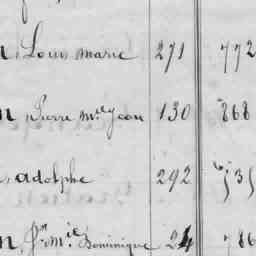 n, Louis marie 271 772
n, Pierre mel Jean 130 868
, adolphe 292 535
n, Jn mie Dominique 24 786